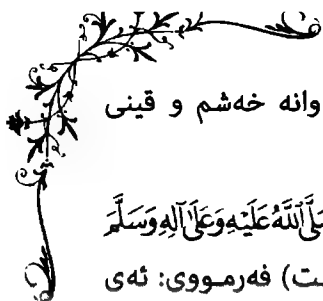 وانە خەشم و قینی
صَلَّى ٱللَّهُ عَلَيْهِ وَعَلَىٰ آلِهِ وَسَلَّمَ
ـت) فەرمـووی: ئەی